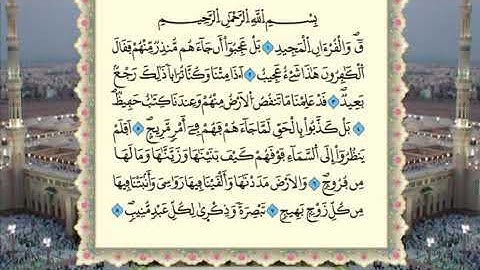 بِسْمِ اللَّهِ الرَّحْمَٰنِ الرَّحِيمِ
قٓ وَالْقُرْءَانِ الْمَجِيدِ ١ بَلْ عَجِبُوا أَن جَاءَهُم مُّنذِرٌ مِّنْهُمْ فَقَالَ
الْكَٰفِرُونَ هَٰذَا شَيْءٌ عَجِيبٌ ٢ أَٰذَا مِتْنَا وَكُنَّا تُرَابًا ذَٰلِكَ رَجْعٌ
بَعِيدٌ ٣ قَدْ عَلِمْنَا مَا تَنقُصُ الْأَرْضُ مِنْهُمْ وَعِندَنَا كِتَٰبٌ حَفِيظٌ
٤ بَلْ كَذَّبُوا بِالْحَقِّ لَمَّا جَاءَهُمْ فَهُمْ فِي أَمْرٍ مَّرِيجٍ ٥ أَفَلَمْ
يَنظُرُوا إِلَى السَّمَاءِ فَوْقَهُمْ كَيْفَ بَنَيْنَٰهَا وَزَيَّنَّٰهَا وَمَا لَهَا
مِن فُرُوجٍ ٦ وَالْأَرْضَ مَدَدْنَٰهَا وَأَلْقَيْنَا فِيهَا رَوَٰسِيَ وَأَنبَتْنَا فِيهَا
مِن كُلِّ زَوْجٍ بَهِيجٍ ٧ تَبْصِرَةً وَذِكْرَىٰ لِكُلِّ عَبْدٍ مُّنِيبٍ ٨